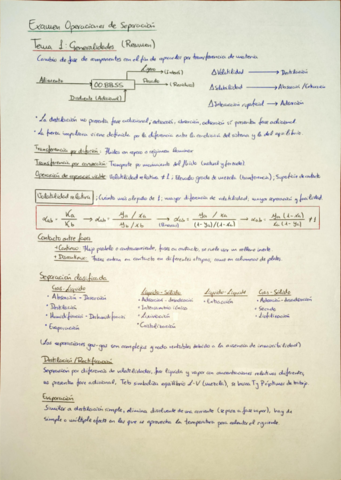 Examen Operaciones de Separación
Tema 1: Generalidades (Resumen)
Cambio de fase de componentes con el fin de separarlos por transferencia de materia
Ligero
Alimento
Pesado (Residual)
Disolvente (Adicional)
Δ Volatilidad → Destilación
Δ Solubilidad → Absorción / Extracción
Δ Interacción superficial → Adsorción
• La destilación no presenta fase adicional, extracción, absorción, adsorción sí presentan fase adicional
• La fuerza impulsora viene definida por la diferencia entre la condición del sistema y la del equilibrio
Transferencia por difusión: Fluidos en reposo o régimen laminar
Transferencia por convección: Transporte por movimiento del fluido (natural y forzada)
Operación de separación viable: Volatilidad relativa ≠ 1; Elevado grado de mezcla (transferencia); Superficie de contacto
Volatilidad relativa: Cuanto más alejada de 1; mayor diferencia de volatilidad, mayor separación y facilidad
Contacto entre fases
• Continuo: Flujo paralelo o contracorriente, fases en contacto
• Discontinuo: Fases entran en contacto en diferentes etapas, como en columnas de platos.
Separación de fluido
Gas-Líquido
• Absorción - Desorción
• Destilación
• Humidificación - Deshumidificación
• Evaporación
Líquido-Sólido
• Adsorción - Desadsorción
• Intercambio iónico
• Lixiviación
• Cristalización
Líquido-Líquido
• Extracción
Gas-Sólido
• Adsorción - Desadsorción
• Secado
• Liofilización
(Las separaciones gas-gas son complejas y nada rentables debido a la ausencia de inmiscibilidad)
Destilación/Rectificación
Separación por diferencia de volatilidades, fase líquida y vapor con concentraciones relativas diferentes,
no presenta fase adicional. Todo simboliza equilibrio L-V (correcto), se buscan T y P óptimas de trabajo.
Evaporación
Similar a destilación simple, elimina disolvente de una corriente (el paso a fase vapor), hay de
simple o múltiple efecto en las que se aprovecha la temperatura para calentar el siguiente